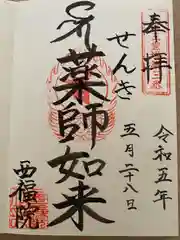 奉拝
令和五年
五月二十八日
せんき
薬師如来
西福院